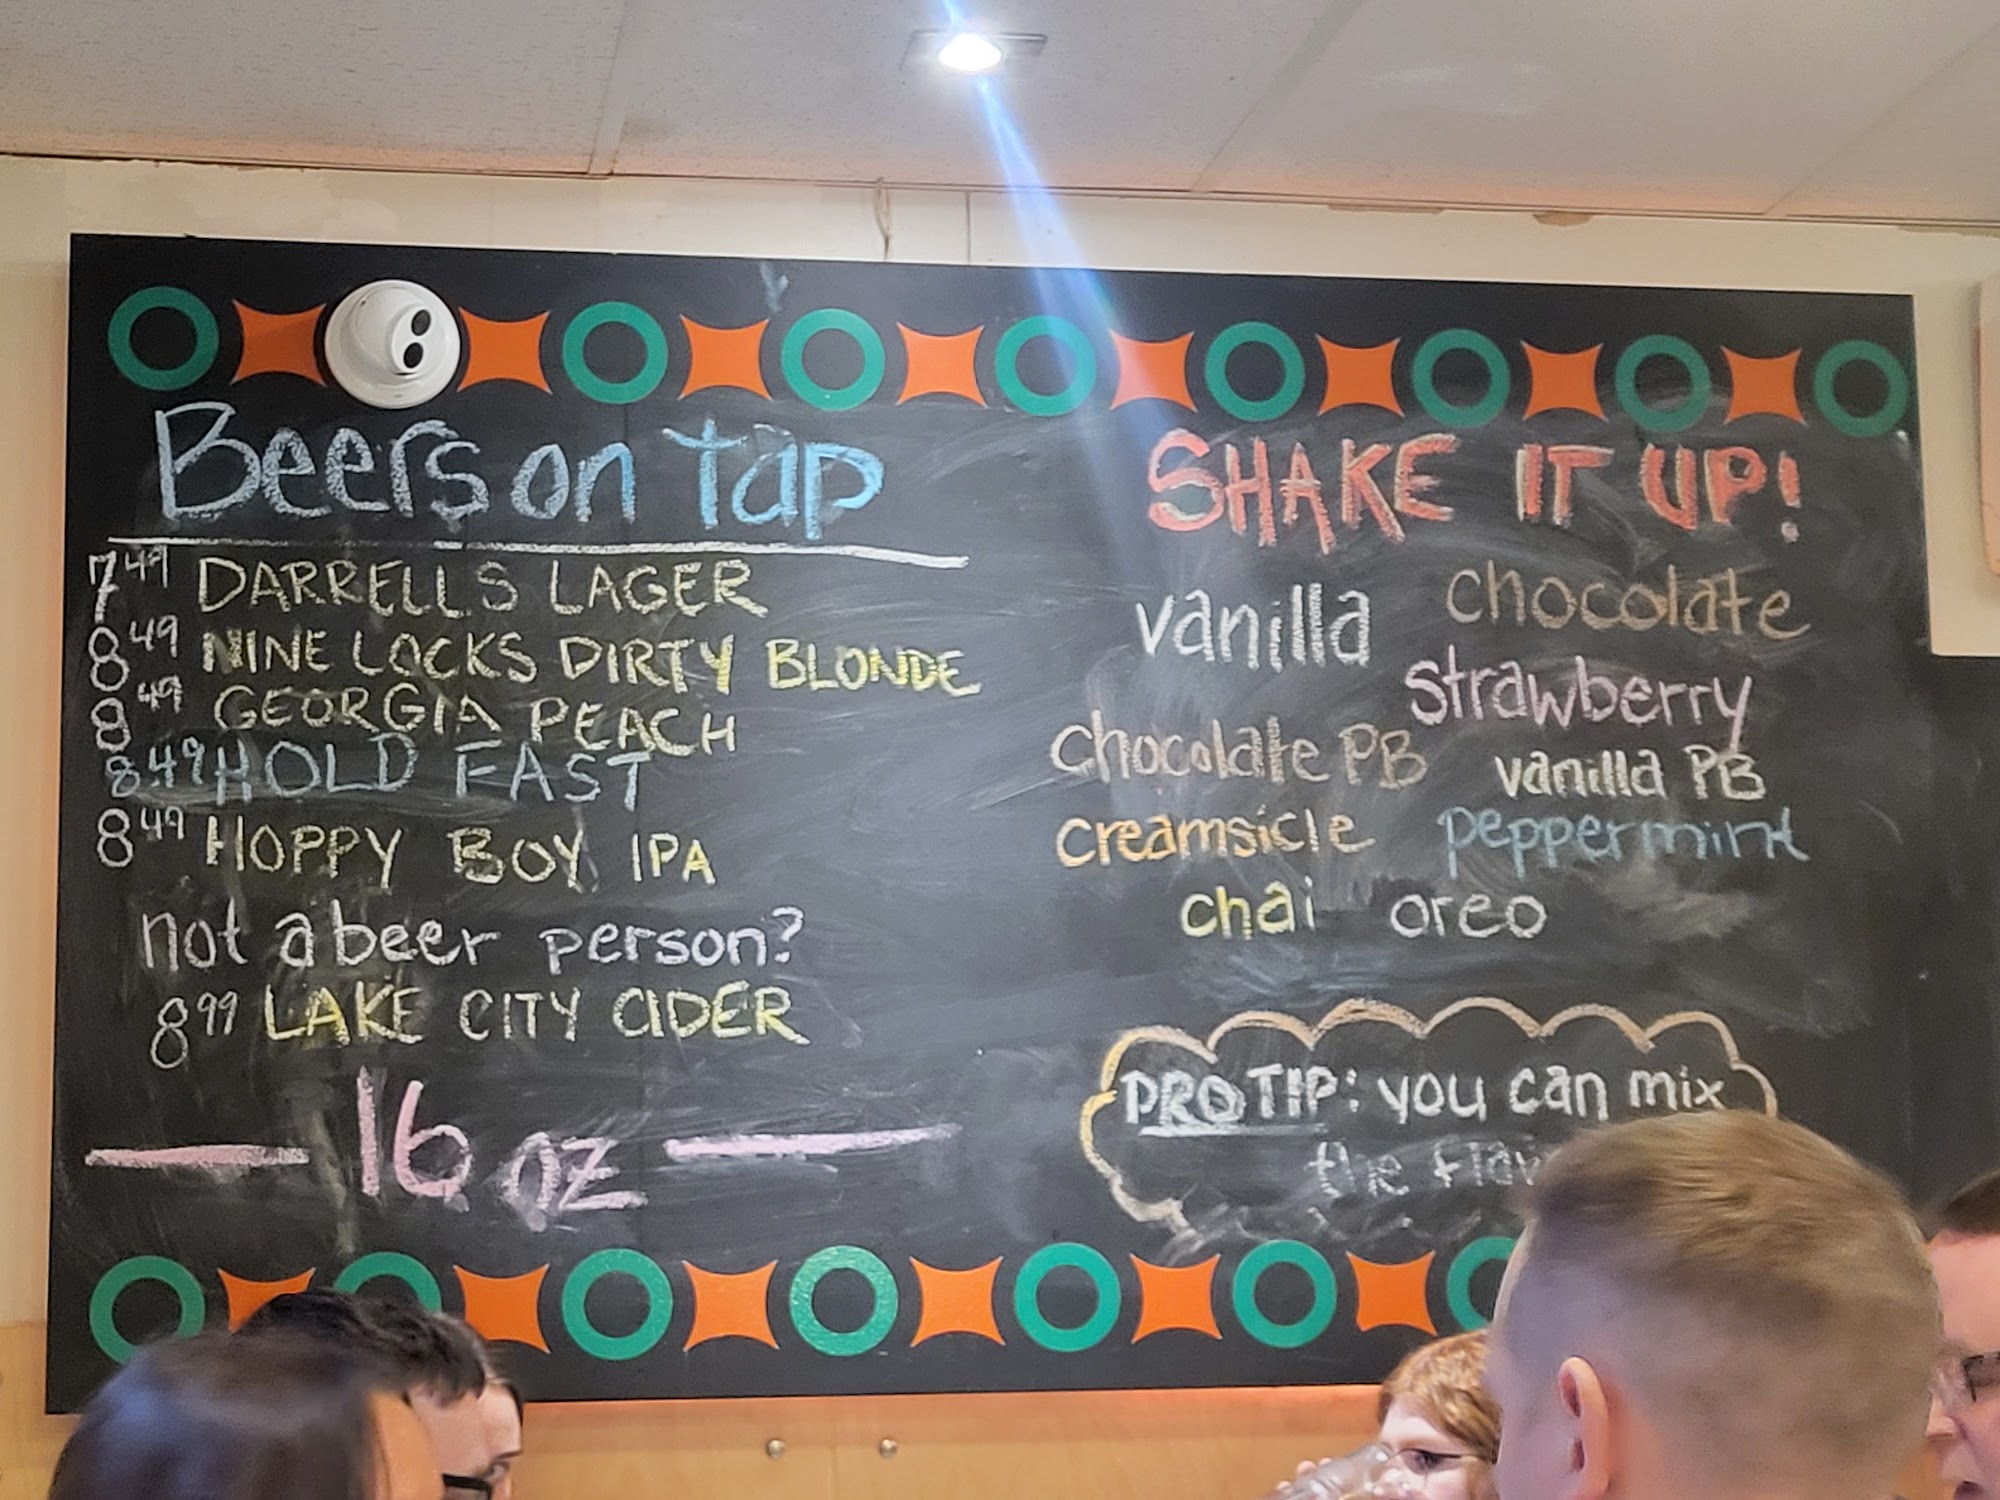 Beers on tap
7.49 DARRELLS LAGER
8.49 NINE LOCKS DIRTY BLONDE
8.49 GEORGIA PEACH
8.49 HOLD FAST
8.49 HOPPY BOY IPA
not a beer person?
8.99 LAKE CITY CIDER
16 oz
SHAKE IT UP!
vanilla chocolate
strawberry
chocolate PB vanilla PB
creamsicle peppermint
chai oreo
PRO TIP: you can mix
the